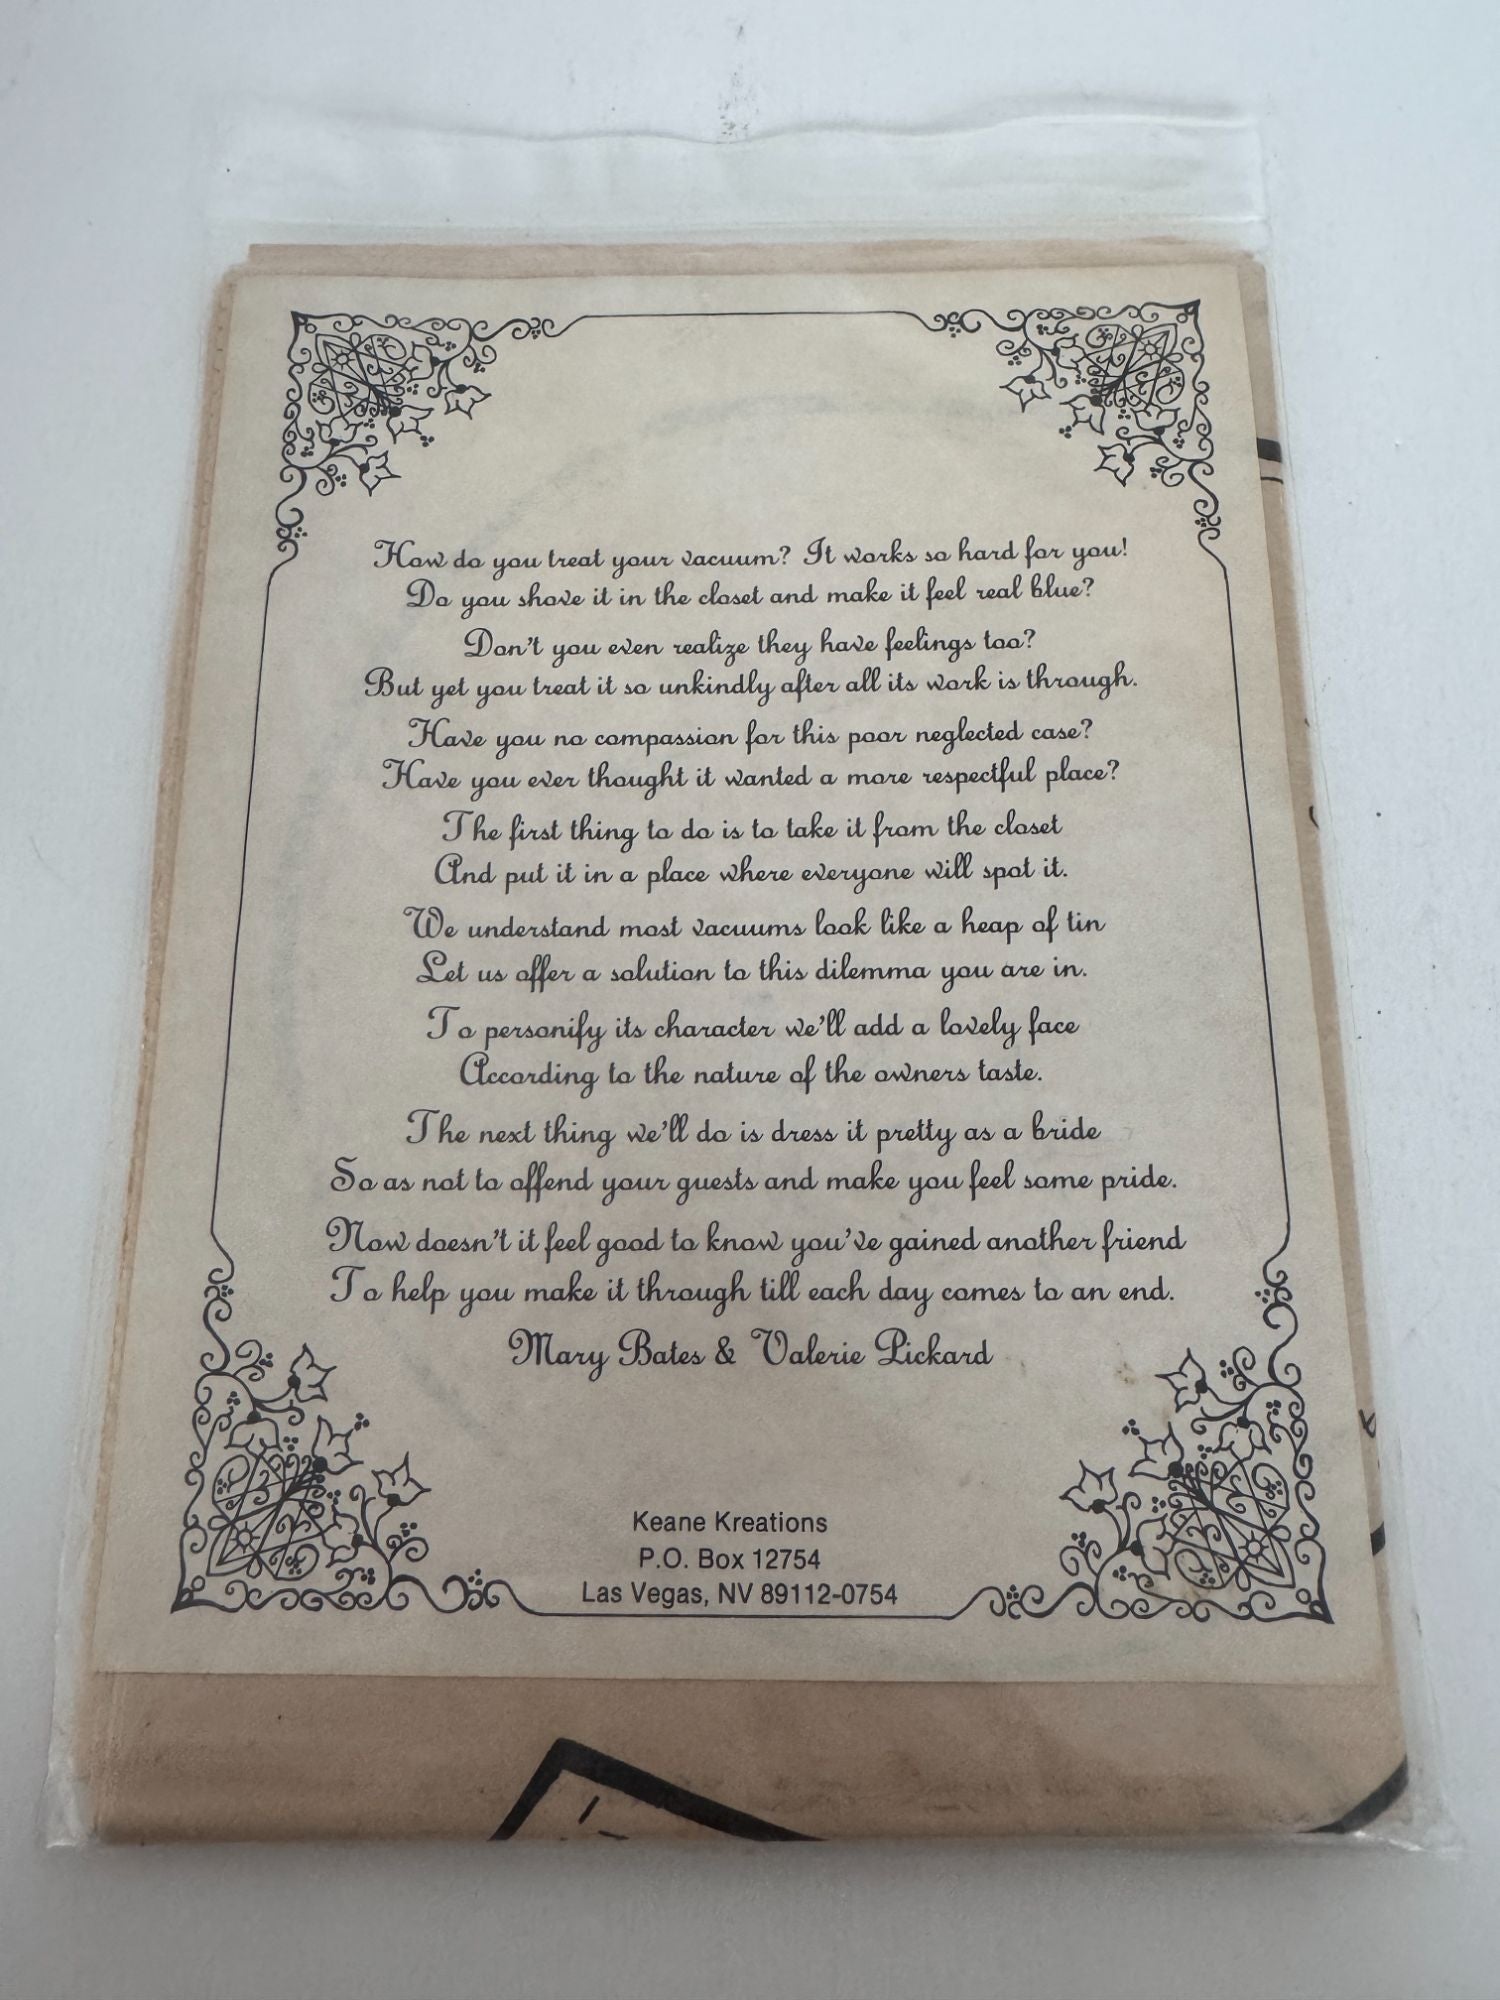 How do you treat your vacuum? It works so hard for you!
Do you shove it in the closet and make it feel real blue?
Don't you even realize they have feelings too?
But yet you treat it so unkindly after all its work is through.
Have you no compassion for this poor neglected case?
Have you ever thought it wanted a more respectful place?
The first thing to do is to take it from the closet
And put it in a place where everyone will spot it.
We understand most vacuums look like a heap of tin
Let us offer a solution to this dilemma you are in.
To personify its character we'll add a lovely face
According to the nature of the owners taste.
The next thing we'll do is dress it pretty as a bride
So as not to offend your guests and make you feel some pride.
Now doesn't it feel good to know you've gained another friend
To help you make it through till each day comes to an end.
Mary Bates & Valerie Pickard
Keane Kreations
P.O. Box 12754
Las Vegas, NV 89112-0754